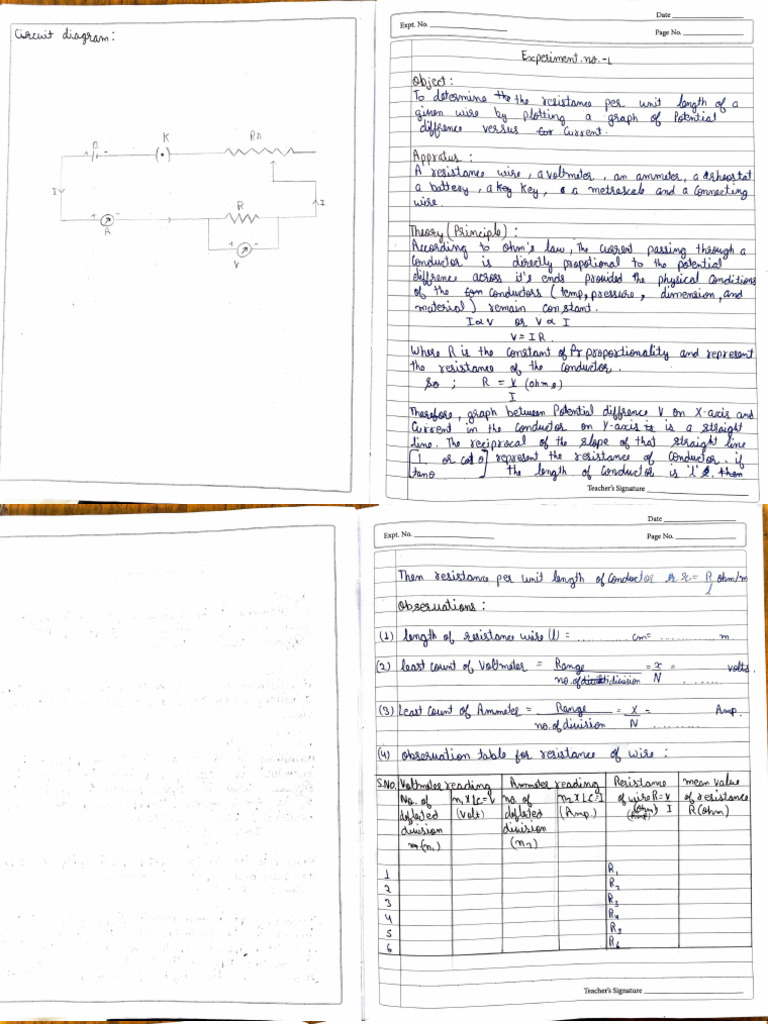 Circuit diagram:
K
Rh
I
I
R
A
V
Date
Expt. No.
Page No.
Experiment. no. -1
Object:
To determine the the resistance per unit length of a
given wire by plotting a graph of Potential
diffrence versus cor Current.
Appratus:
A resistance wire, a voltmeter, an ammeter, a rheostat
a battery, a key Key, a metrescale and a connecting
wire.
Theory (Principle):
According to ohm's law, the current passing through a
conductor is directly propotional to the potential
diffrence across it's ends provided the physical conditions
of the con conductors (temp, pressure, dimension, and
material) remain constant.
I ∝ V or V ∝ I
V = IR.
Where R is the constant of Pr proportionality and represent
the resistance of the conductor.
So ; R = V (ohms)
I
Therefore, graph between Potential diffrence V on X-axis and
Current in the conductor on Y-axis is is a straight
line. The reciprocal of the slope of that straight line
[1 or cot θ] represent the resistance of conductor. if
tanθ the length of conductor is 'l'. then
Teacher's Signature
Date
Expt. No.
Page No.
Then resistance per unit length of conductor r = R ohm/m
l
Observations:
(1) length of resistance wire (l) = .......... cm= .......... m
(2) least count of Voltmeter = Range = x = volts.
no. of division N .......
(3) Least count of Ammeter = Range = x = Amp.
no. of division N ..........
(4) observation table for resistance of wire:
S.NO. Voltmeter reading Ammeter reading Resistance mean value
No. of n₁ x LC = V no. of n₂ x LC = I of wire R = V of resistance
deflated (Volt) deflated (Amp.) (ohm) I R (ohm)
division division
(n₁) (n₂)
1 R₁
2 R₂
3 R₃
4 R₄
5 R₅
6 R₆
Teacher's Signature